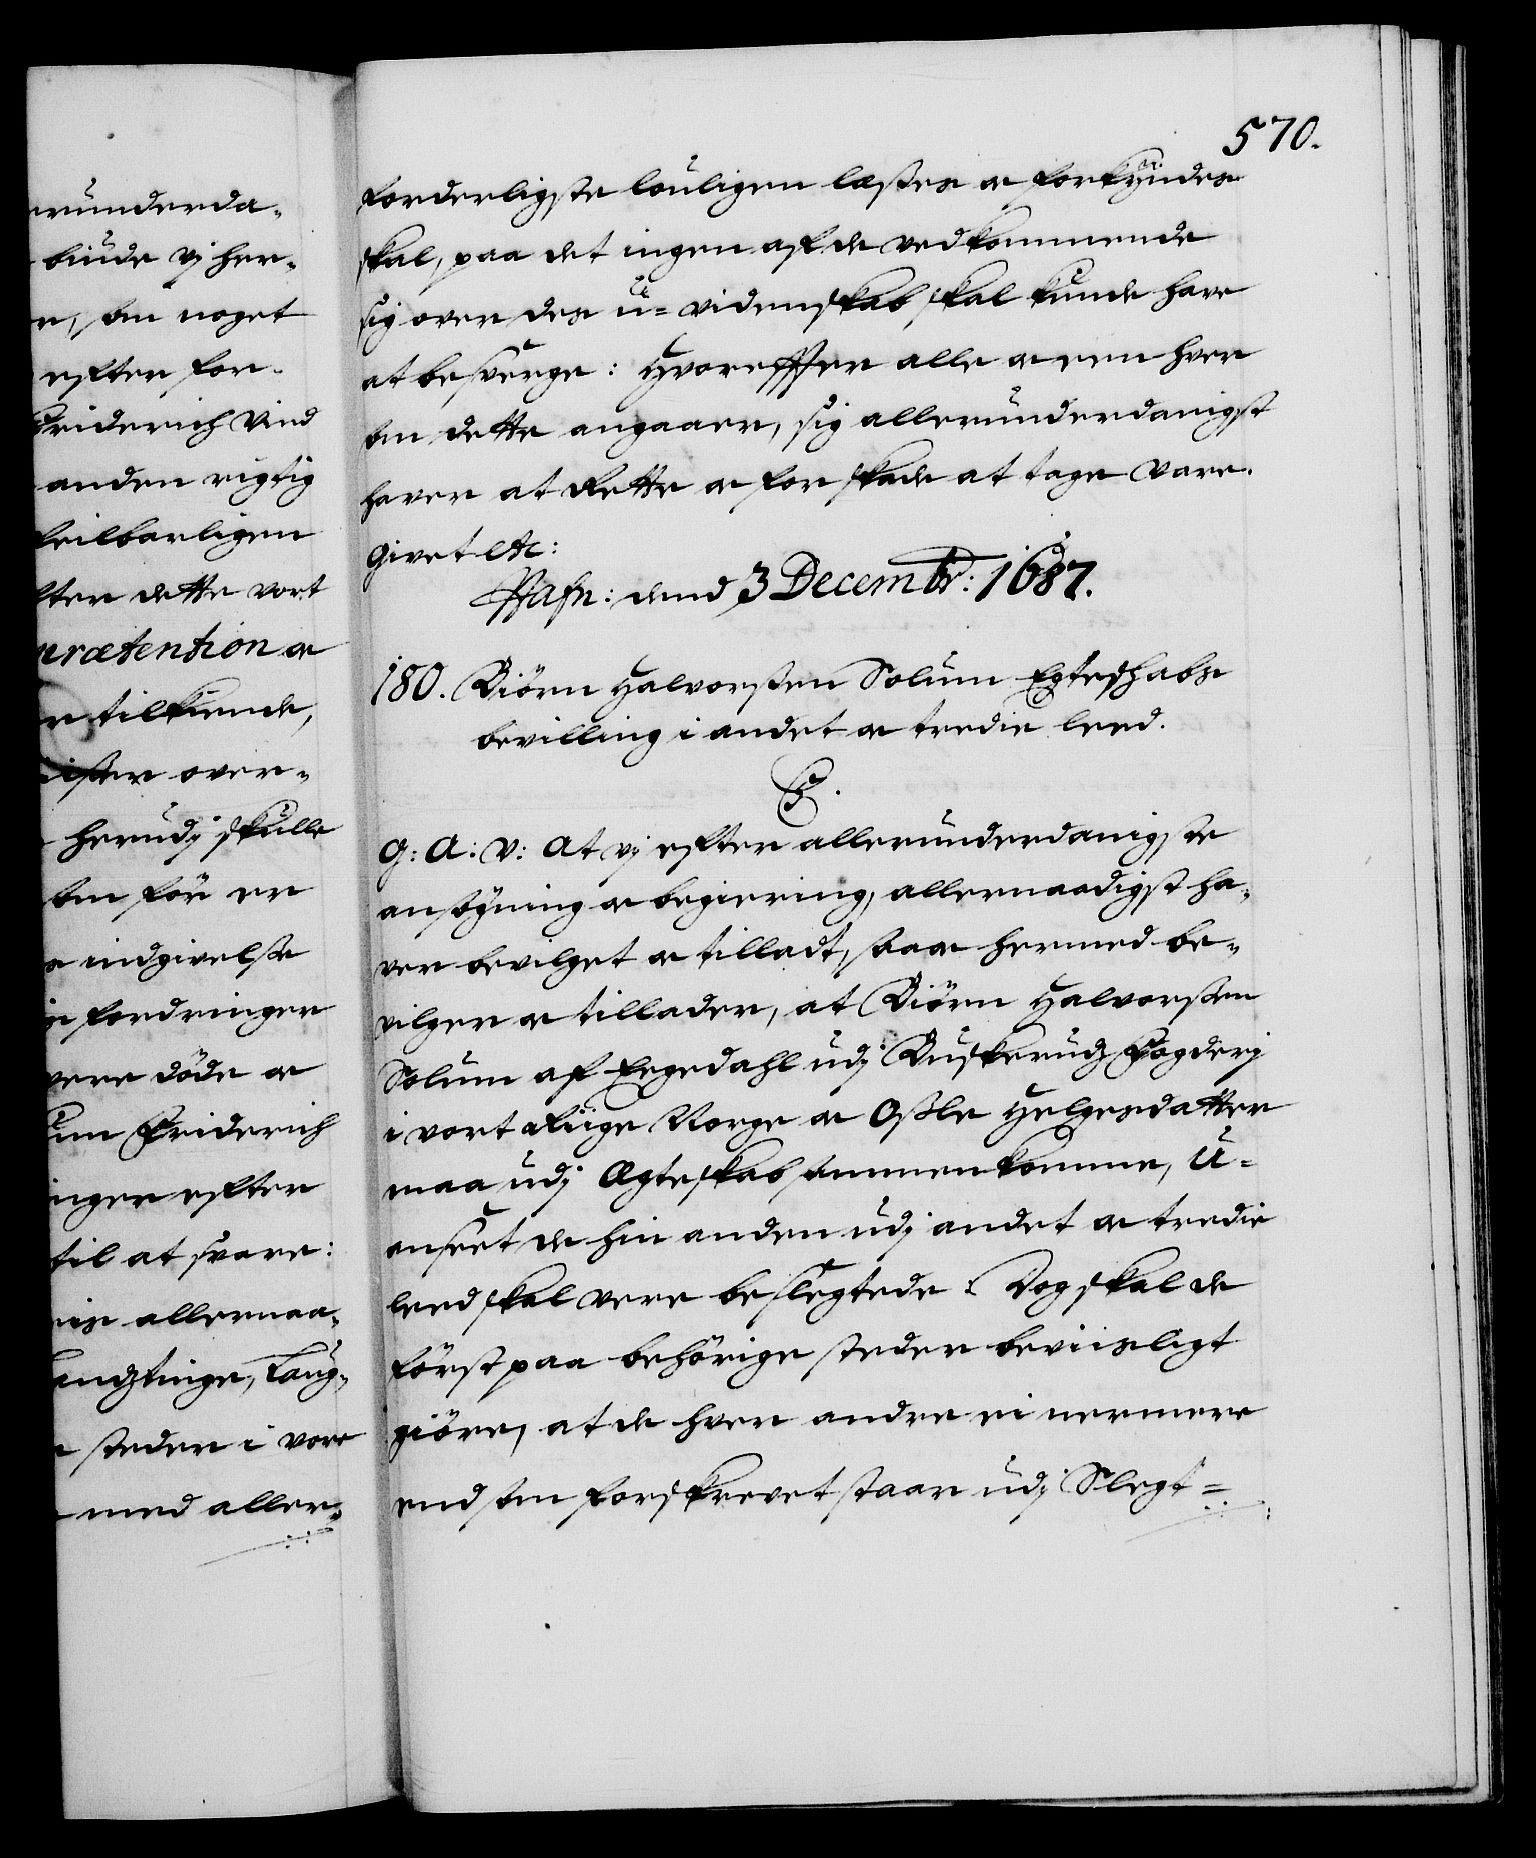 570.
forderligste louligen læstes og forkyndes
skal, paa det ingen af de vedkommende
sig over des u= videnskab skal kunde have
at besverge: Hvorefter alle og een hver
som dette angaaer, sig allerunderdanigst
haver at Rette og for skade at tage vare.
Givet etc:
Haffn: dend 3 Decembr: 1687.
180. Biörn Halvorssen Solum Egteskabs
bevilling i andet og tredie leed.
C5.
G: A: V: At vj efter allerunderdanigste
ansögning og begiering, allernaadigst ha-
ver bevilget og tilladt, saa og hermed be-
vilger og tillader, at Biörn Halvorssen
Solum af Eggedahl udj Buskeruds Fogderj
i vort Riige Norge og Osle Helgesdatter
maa udj Ægteskab sammenkomme, U-
anseet de hin anden udj andet og tredie
leed skal vere beslegtede. Dog skal de
först paa behörige steder beviisligt
giöre, at de hver andre ei nermere
end som forskrevet staar udj Slegt=
runderda-
biude vj her-
som noget
efter for-
Friderich Vind
anden rigtig
feilbarligen
ter dette vort
prætention og
tilkiende,
ister over-
herudj skulle
som för er
indgivelse
fordringer
vere döde og
um Friderich
inger efter
til at svare:
allernaa-
andztinge, Laug-
steder i vore
med aller-